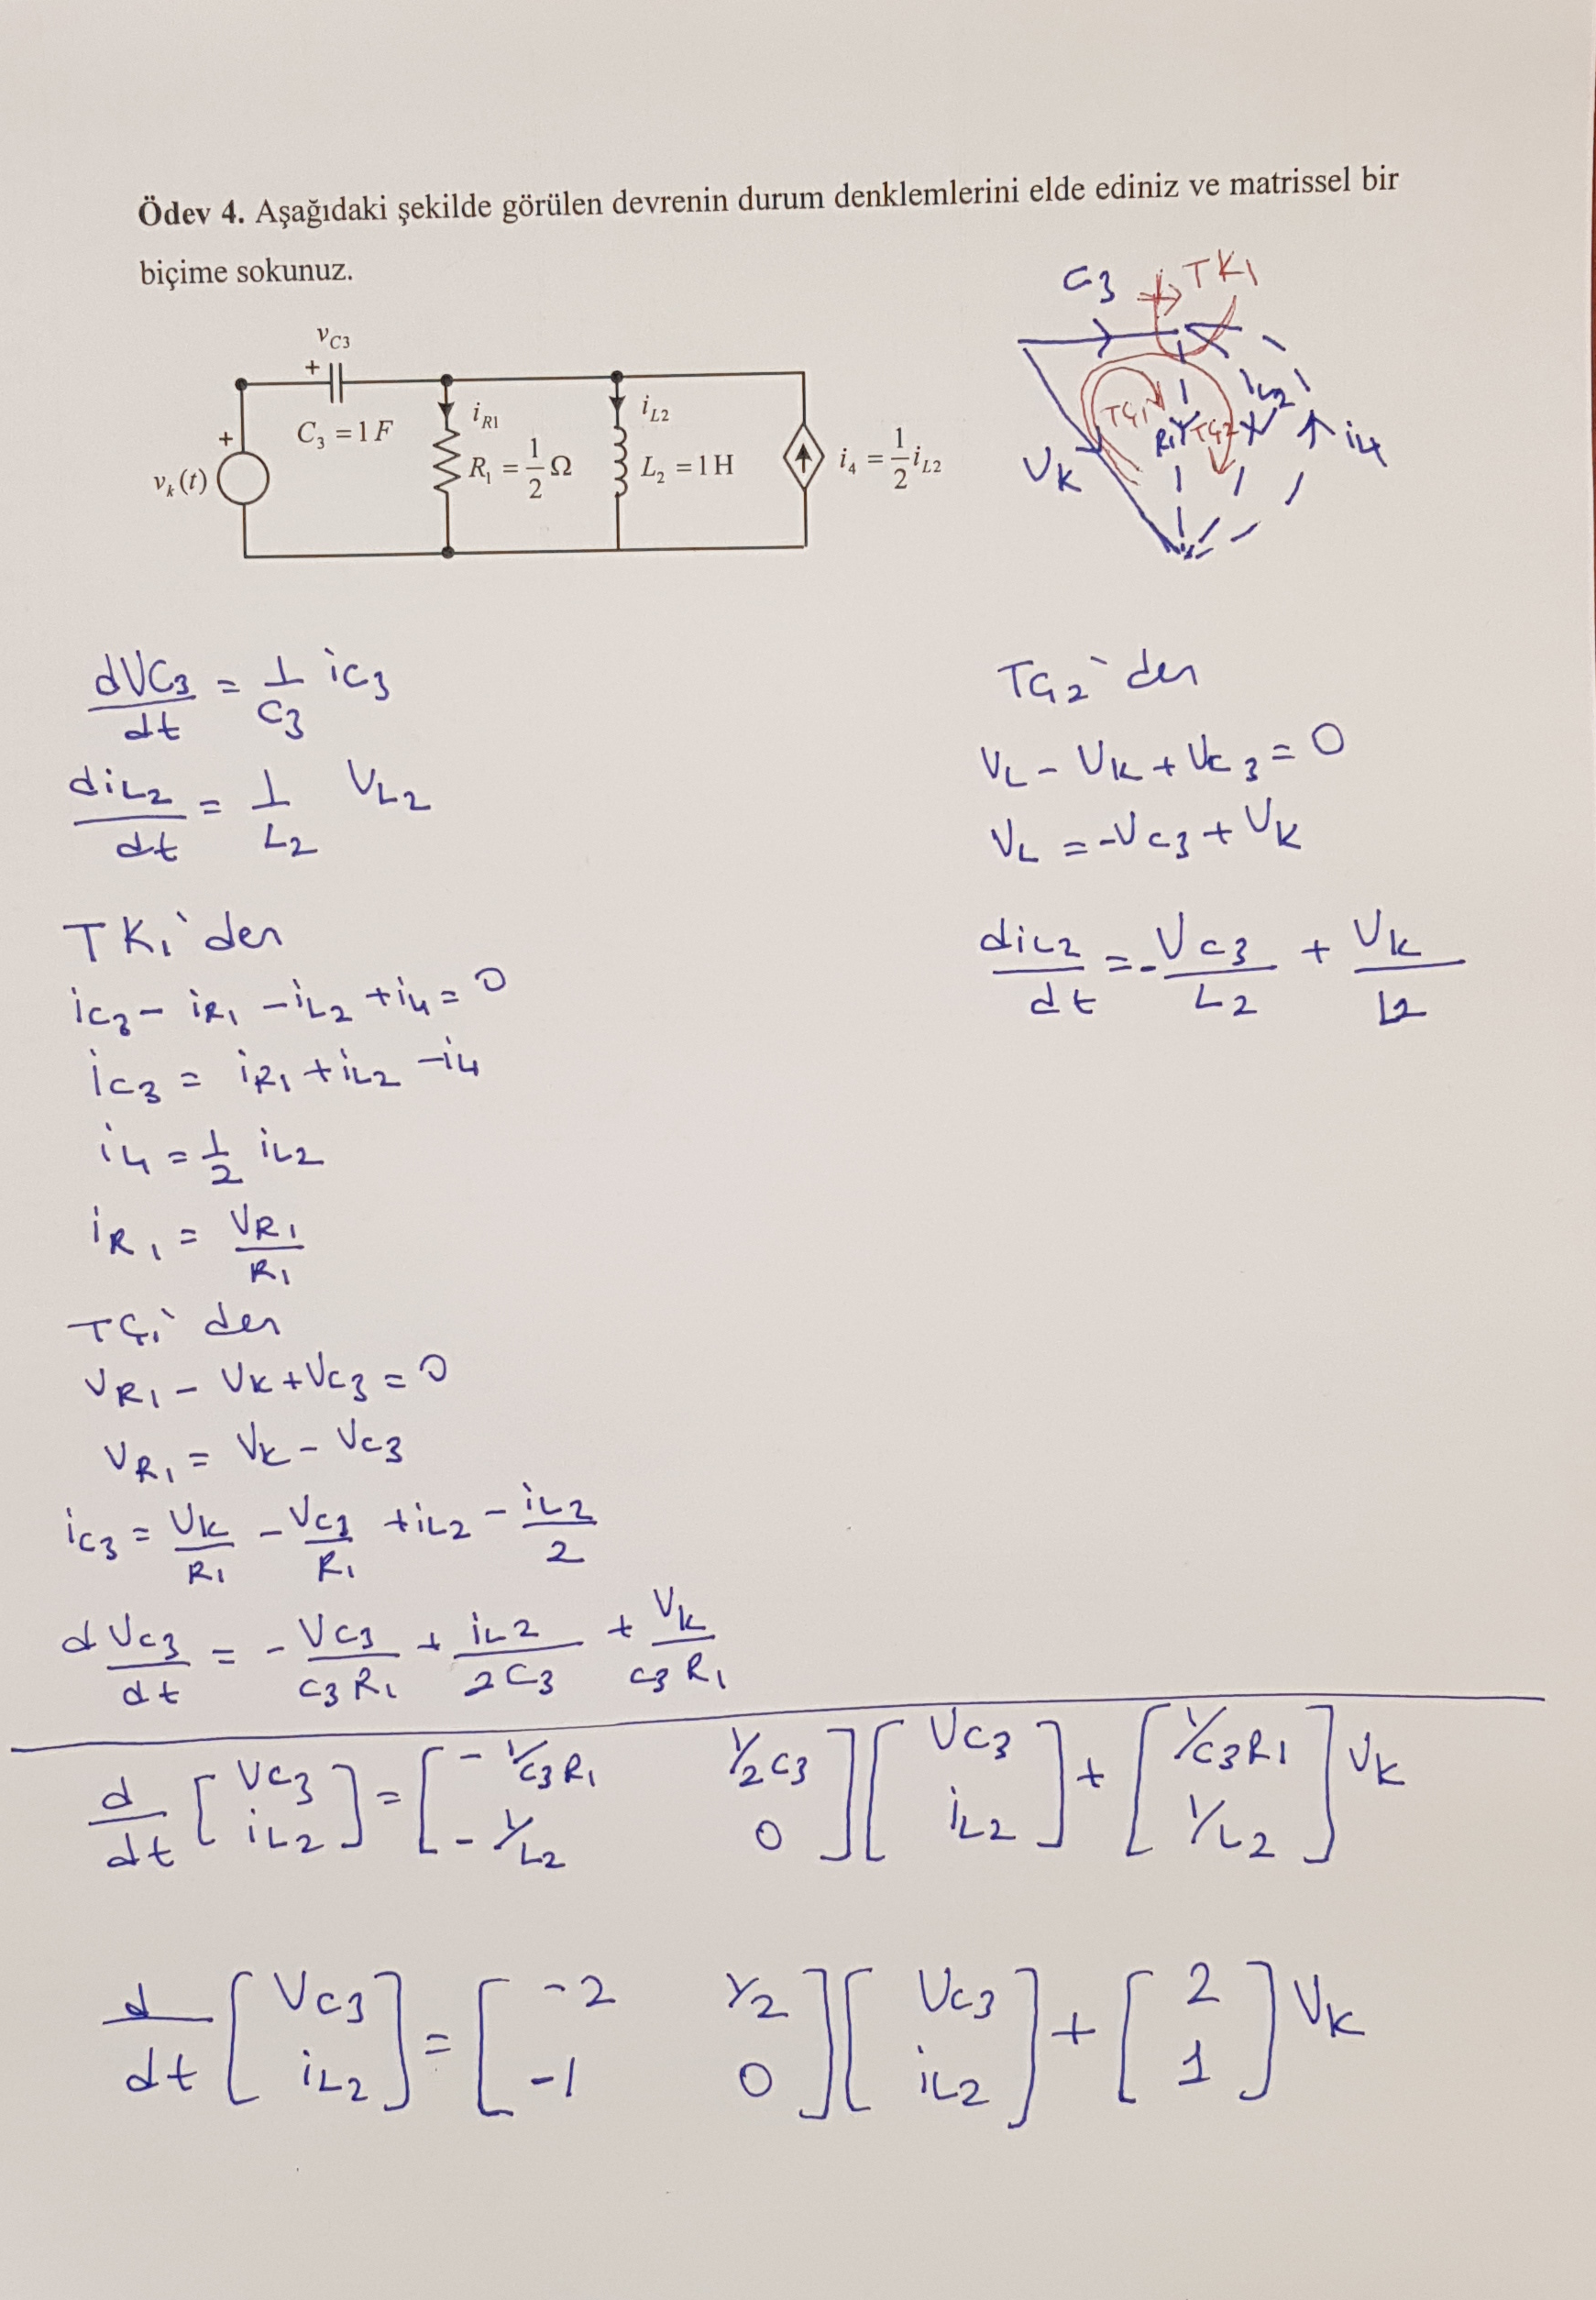 Ödev 4. Aşağıdaki şekilde görülen devrenin durum denklemlerini elde ediniz ve matrissel bir
biçime sokunuz.
v_C3
+
C_3 = 1 F
+
v_k(t)
i_R1
R_1 = 1/2 Ω
i_L2
L_2 = 1 H
i_4 = 1/2 i_L2
C3
TK1
TÇ1
R1
TÇ2
iL2
i4
Vk
dVC3/dt = 1/C3 iC3
diL2/dt = 1/L2 VL2
TK1'den
iC3 - iR1 - iL2 + i4 = 0
iC3 = iR1 + iL2 - i4
i4 = 1/2 iL2
iR1 = VR1/R1
TÇ1'den
VR1 - Vk + VC3 = 0
VR1 = Vk - VC3
iC3 = Vk/R1 - VC3/R1 + iL2 - iL2/2
dVC3/dt = - VC3/C3R1 + iL2/2C3 + Vk/C3R1
TÇ2'den
VL - Vk + VC3 = 0
VL = -VC3 + Vk
diL2/dt = - VC3/L2 + Vk/L2
d/dt [VC3; iL2] = [-1/C3R1 1/2C3; -1/L2 0] [VC3; iL2] + [1/C3R1; 1/L2] Vk
d/dt [VC3; iL2] = [-2 1/2; -1 0] [VC3; iL2] + [2; 1] Vk